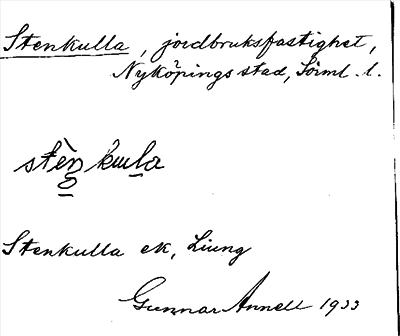 Stenkulla, jordbruksfastighet,
Nyköpings stad, Sörml. l.
Stenkulla ek, Ljung
Gunnar Annell 1933